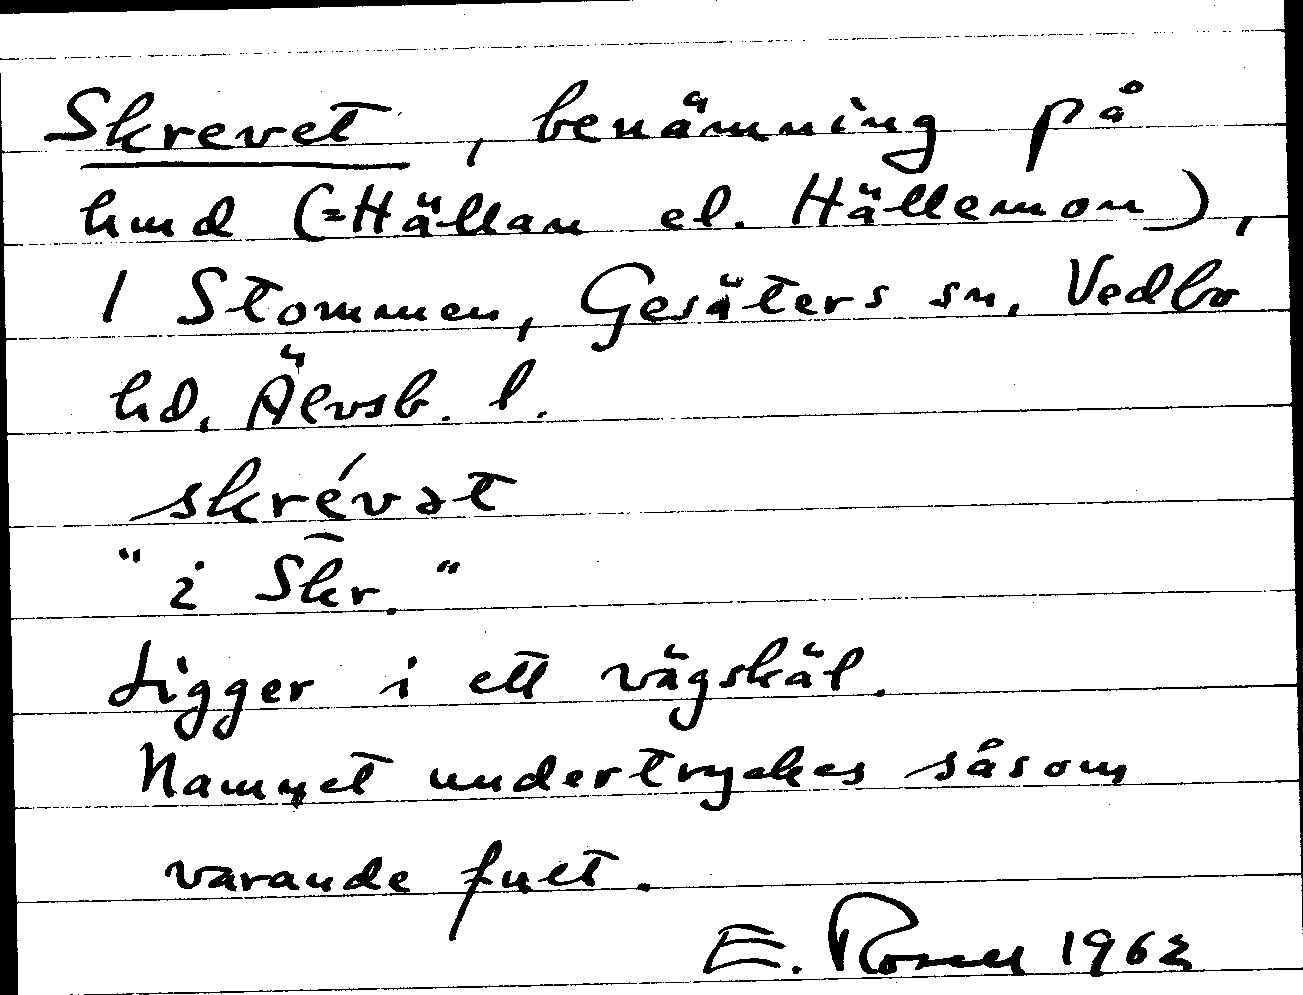 Skrevet, benämning på
hmd (=Hällan el. Hällemon),
1 Stommen, Gesäters sn, Vedbo
hd, Älvsb. l.
skre´vət
"i Skr."
Ligger i ett vägskäl.
Namnet undertryckes såsom
varande fult.
E. Rosell 1962